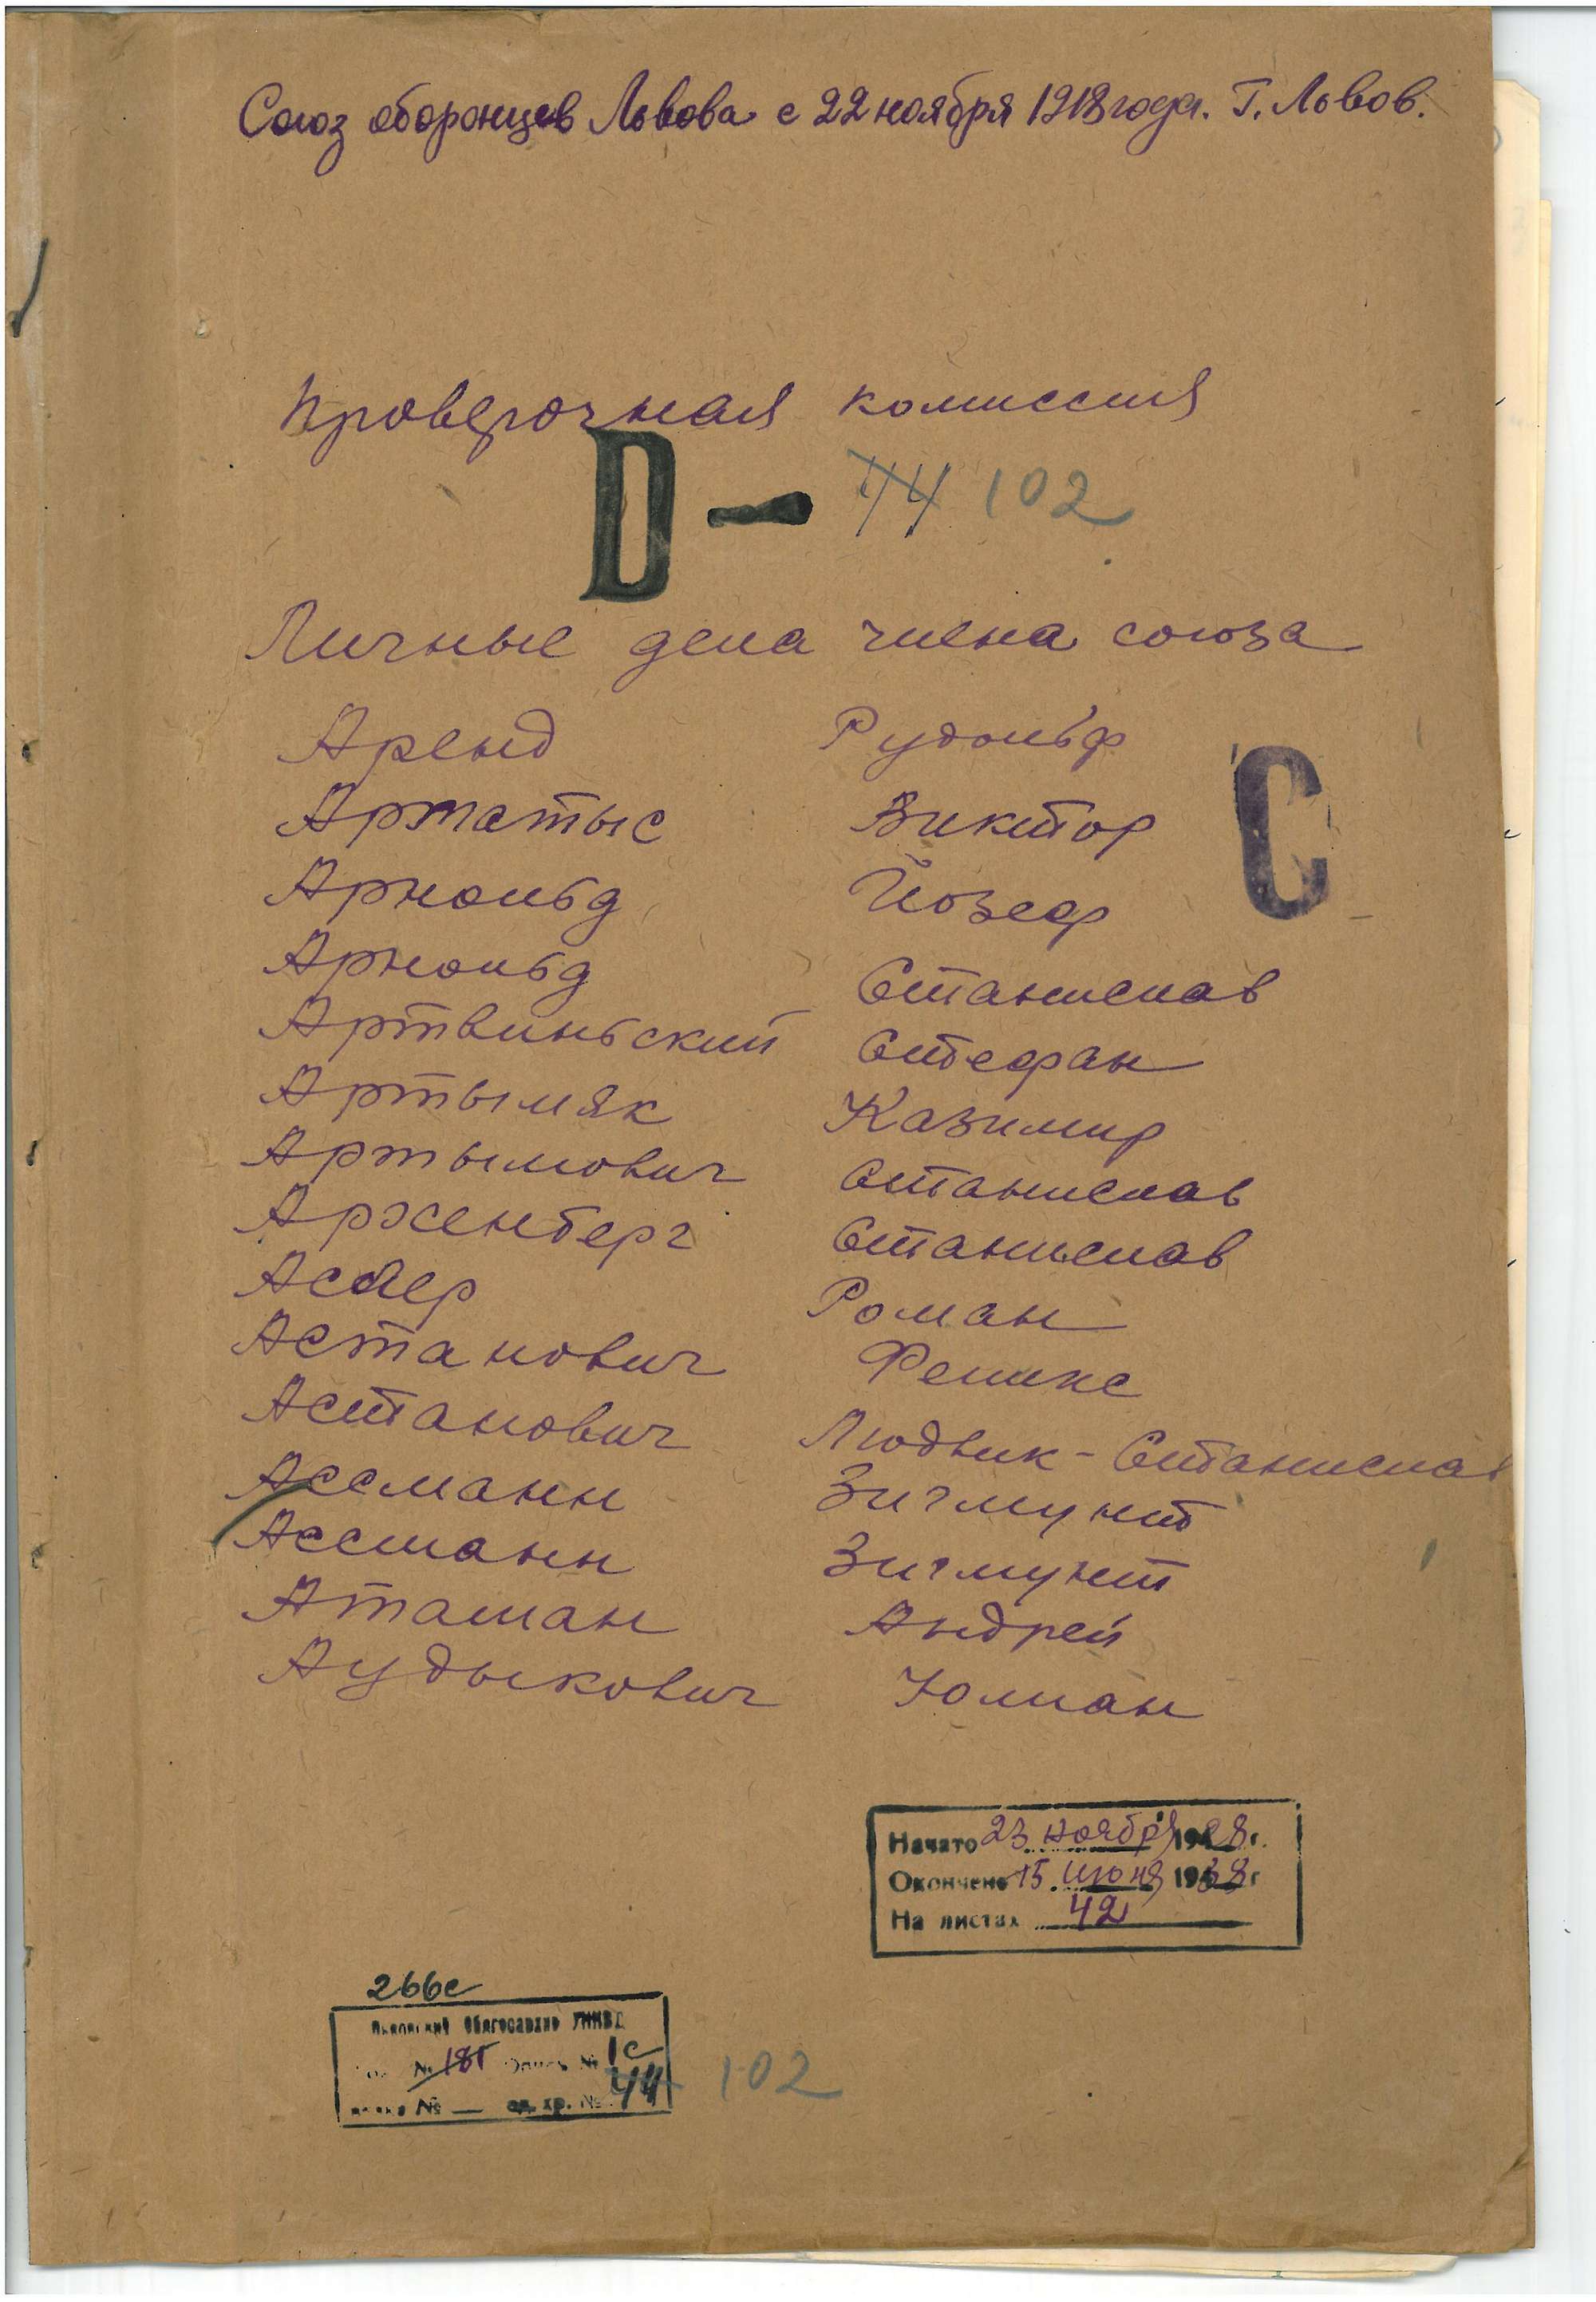 Союз оборонцев Львова с 22 ноября 1918 года. Г. Львов.
Проверочная комиссия
D - 74 102
Личные дела члена союза
Аренд Рудольф
Артатыс Виктор
С
Арнольд Йозеф
Арнольд Станислав
Артвиньский Стефан
Артымяк Казимир
Артымович Станислав
Арженберг Станислав
Аслер Роман
Астанович Феликс
Астанович Людвик-Станислав
Ассманн Зигмунт
Ассманн Зигмунт
Аташан Андрей
Аудыкович Юлиан
Начато 23 ноября 1928 г.
Окончено 15 июня 1938 г
На листах 42
266с
Львовский Облгосархив УНКВД
№ 181 Опись № 1с
№ — ед. хр. № 74 102